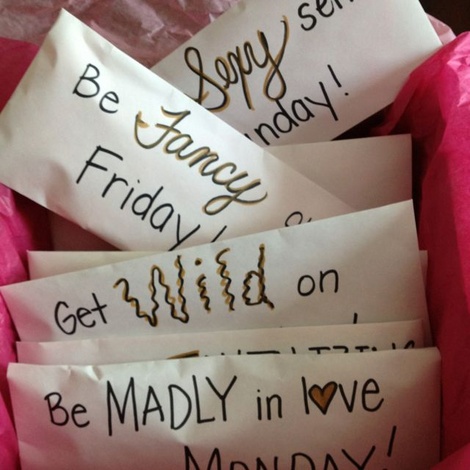 Sexy
Be
Fancy
Friday!
Get Wild on
Be MADLY in love
MONDAY!